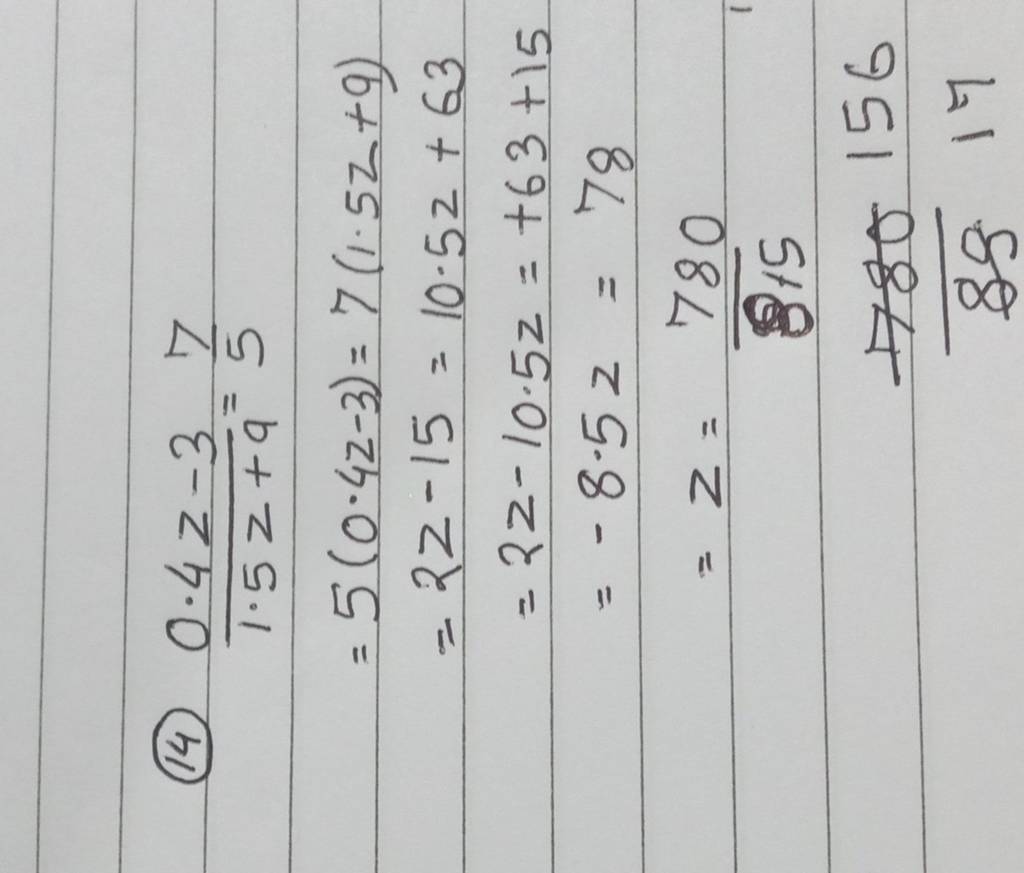 14 0.4z-3 7
1.5z+9 = 5
= 5(0.4z-3) = 7(1.5z+9)
= 2z-15 = 10.5z+63
= 2z-10.5z = +63+15
= -8.5z = 78
= z = 780
815
780 156
85 17